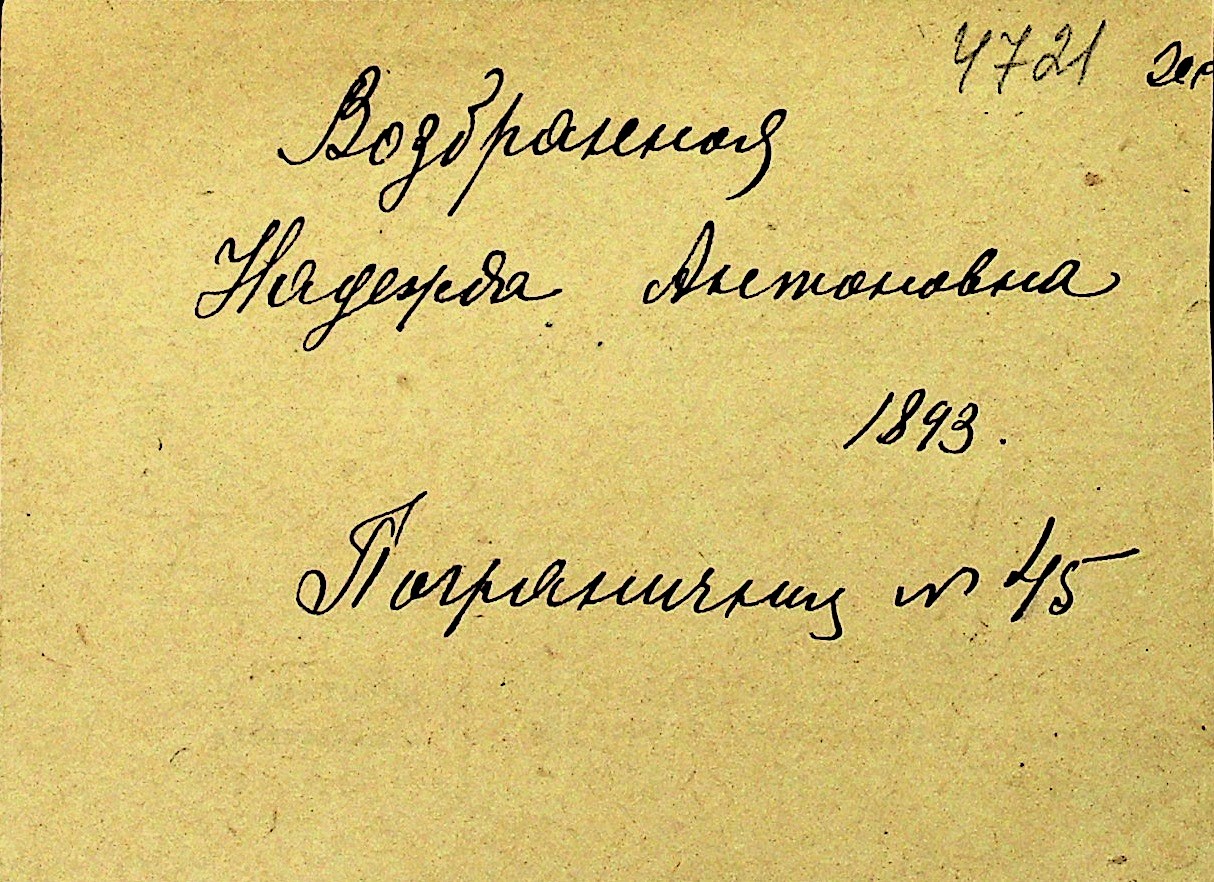 4721
Возбранная
Надежда Антоновна
1893.
Пограничная № 45